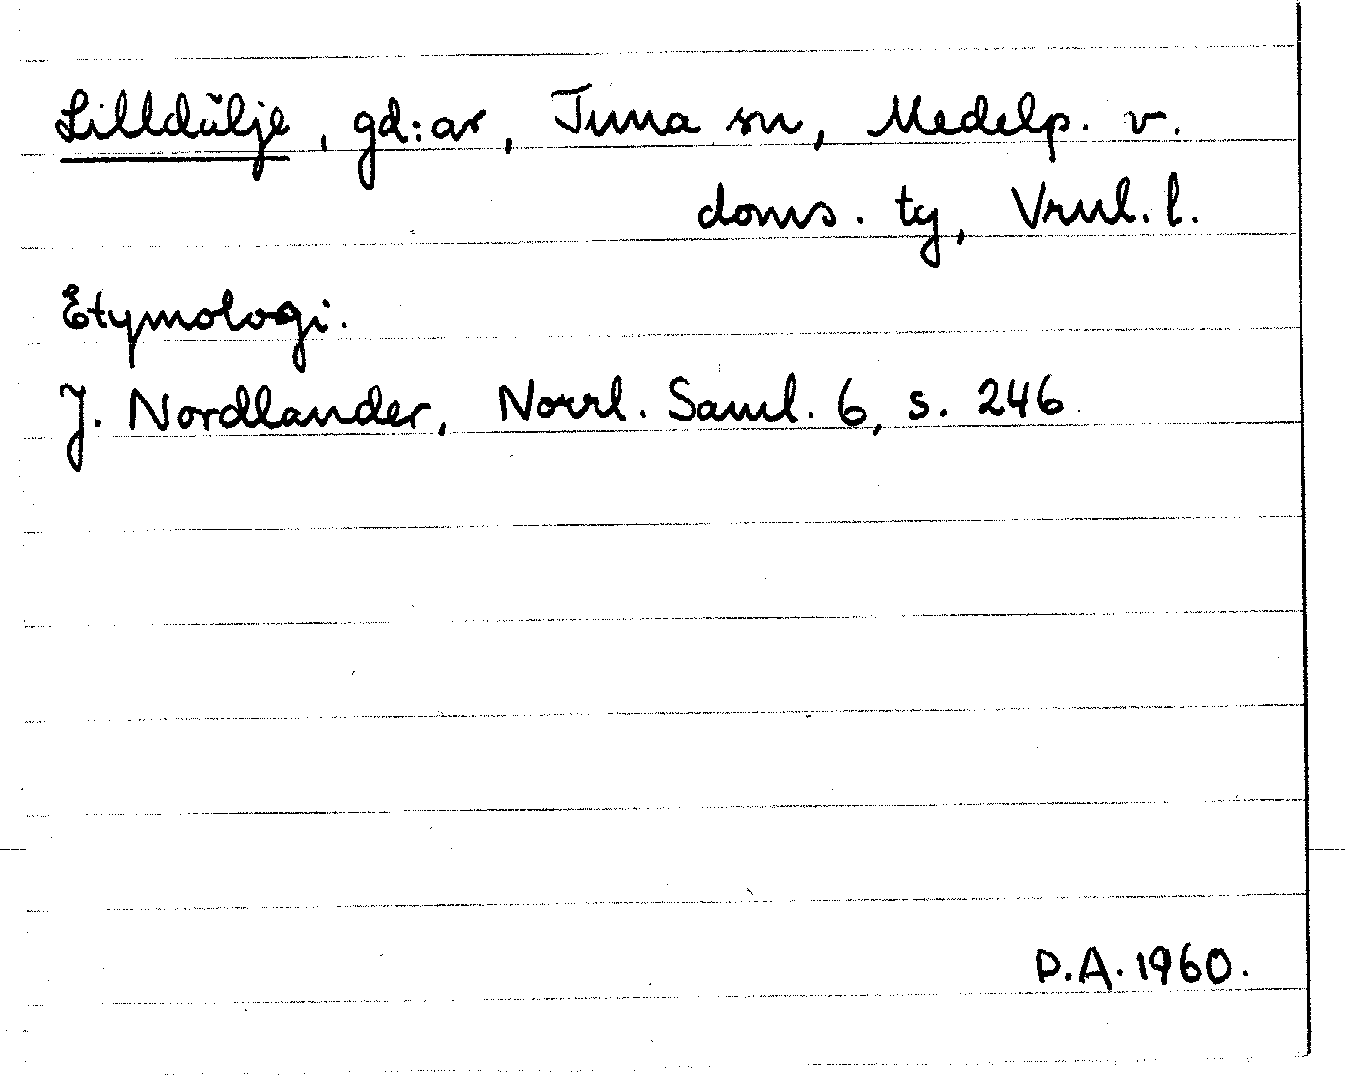 Lilldälje, gd:ar, Tuna sn, Medelp. v.
doms. tg, Vrnl. l.
Etymologi.
J. Nordlander, Norrl. Saml. 6, s. 246
D.A. 1960.